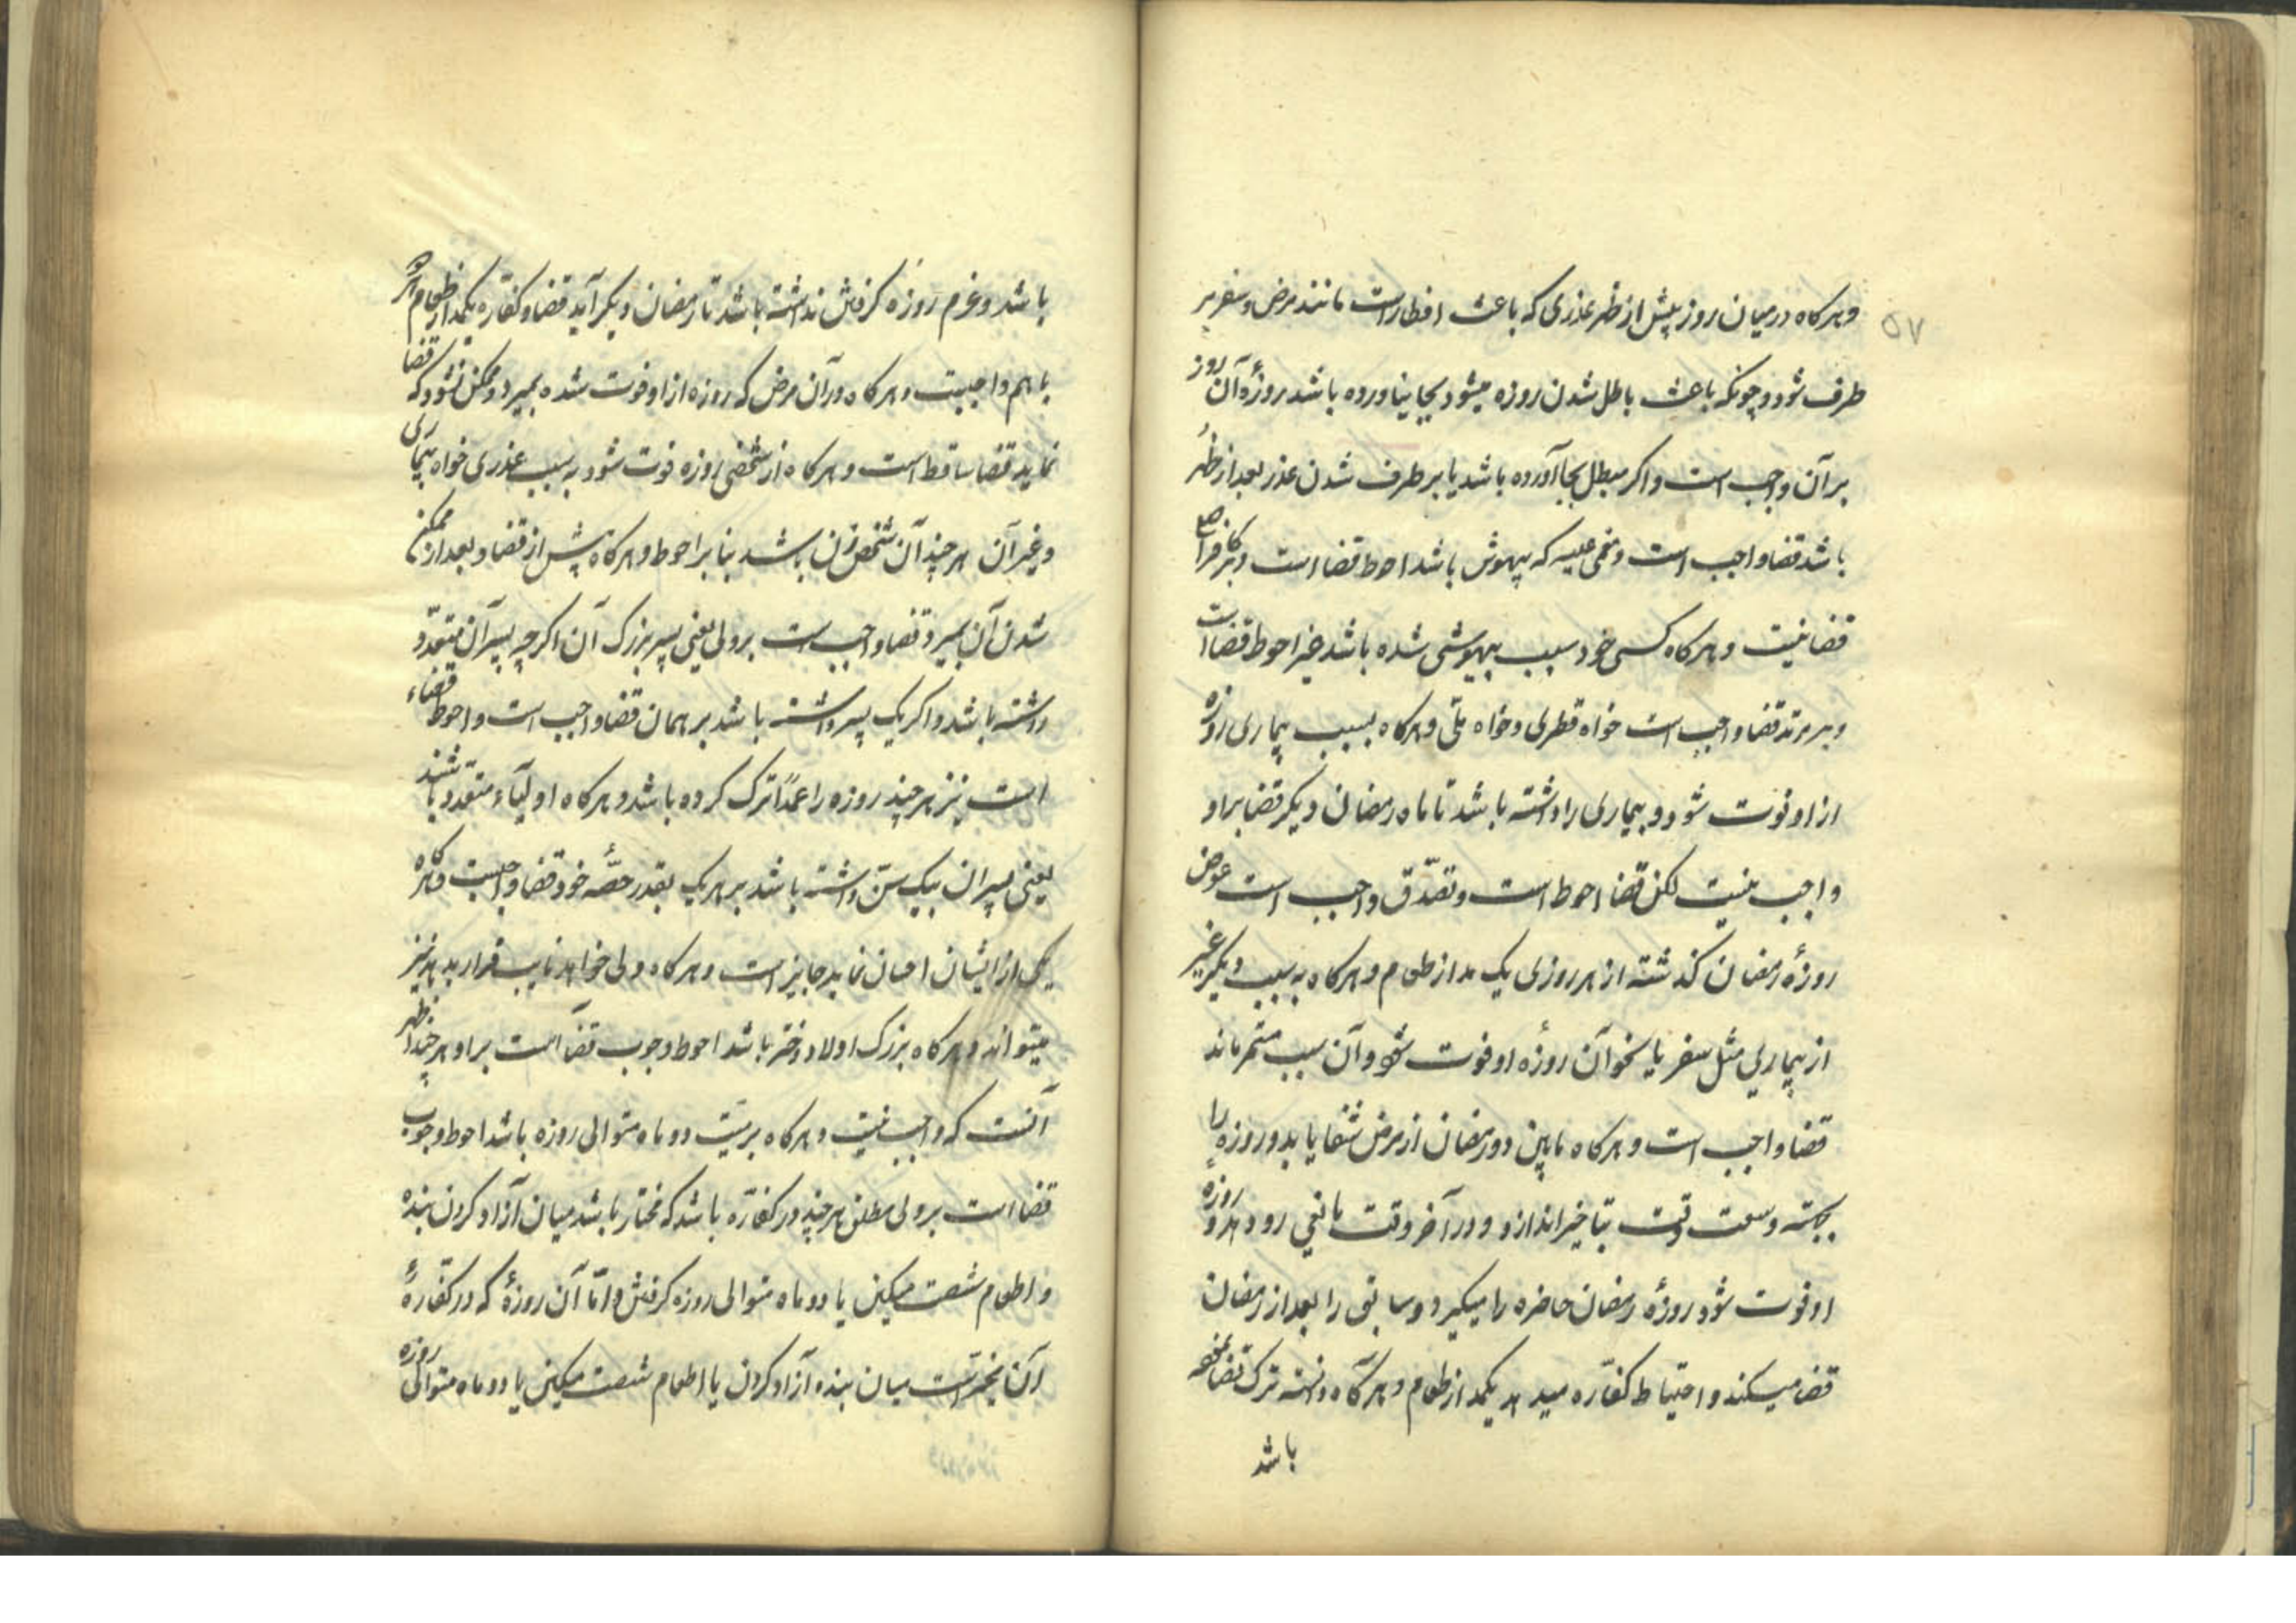 ۵۷
و هرکاه در میان روز پیش از ظهر عذری که باعث افطار است مانند مرض و سفر بر
طرف شود و چونکه باعث باطل شدن روزه میشود بجا نیاورده باشد روزهٔ آن روز
بر آن واجب است و اکر مبطل بجا آورده باشد یا بر طرف شدن عذر بعد از ظهر
باشد قضا واجب است و مغمی علیه که بیهوش باشد احوط قضا است و بر کافر اصلی
قضا نیست و هرکاه کسی خود سبب بیهوشی شده باشد خیر احوط قضا است
و بر مرتد قضا واجب است خواه فطری و خواه ملّی و هرکاه بسبب بیماری روزه
از او فوت شود و بیماری را داشته باشد تا ماه رمضان دیکر قضا بر او
واجب نیست لکن قضا احوط است و تصدّق واجب است عوض
روزهٔ رمضان کذشته از هر روزی یک مد از طعام و هرکاه به سبب دیکر غیر
از بیماری مثل سفر یا نحو آن روزهٔ او فوت شود و آن سبب مستمر ماند
قضا واجب است و هرکاه مابین دو رمضان از مرض شفا یابد و روزه را
بجهته وسعت وقت بتاخیر اندازد و در آخر وقت مانعی رو دهد و روزه
او فوت شود روزهٔ رمضان حاضره را میکیرد و سابق را بعد از رمضان
قضا میکند و احتیاط کفّاره میدهد یکمد از طعام و هرکاه دانسته ترک قضا نموده
باشد
باشد و عزم روزه کرفتن نداشته باشد تا رمضان دیکر آید قضا و کفّاره یکمد از طعام هر دو
با هم واجبست و هرکاه در آن مرض که روزه از او فوت شده بمیرد و ممکن نشود که قضا
نماید قضا ساقط است و هرکاه از شخصی روزه فوت شود به سبب عذری خواه بیماری
و غیر آن هر چند آن شخص زن باشد بنا بر احوط و هرکاه پیش از قضا و بعد از ممکن
شدن آن بمیرد قضا واجب است بر ولی یعنی پسر بزرک آن اکر چه پسر آن متعدّد
داشته باشد و اکر یک پسر داشته باشد بر همان قضا واجب است و احوط قضاء
است نیز هر چند روزه را عمداً ترک کرده باشد و هرکاه اولیآء متعدّد باشند
یعنی پسران بیک سنّ داشته باشد بر هر یک بقدر حصّه خود قضا واجبست و هرکاه
یکی از ایشان احسان نماید جایز است و هرکاه ولی خواهد نایب قرار بدهد نیز
میتواند و هرکاه بزرک اولاد دختر باشد احوط وجوب قضآ است بر او هر چند اظهر
آنست که واجب نیست و هرکاه بر میّت دو ماه متوالی روزه باشد احوط وجوب
قضا است بر ولی مطلق هر چند در کفّاره باشد که مختار باشد میان آزاد کردن بنده
و اطعام شصت مسکین یا دو ماه متوالی روزه کرفتن و امّا آن روزهٔ که در کفّارهٔ
آن مخیّر است میان بنده آزاد کردن یا اطعام شصت مسکین یا دو ماه متوالی روزه